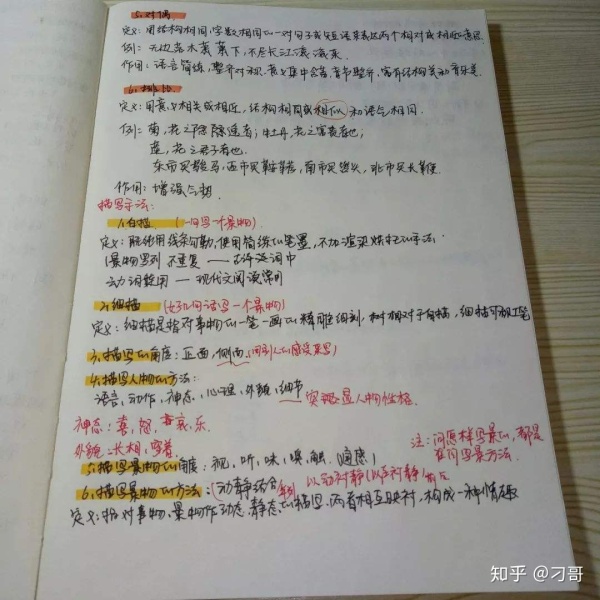 5. 对偶
定义: 用结构相同,字数相同的一对句子或短语来表达两个相对或相近意思.
例: 无边落木萧萧下,不尽长江滚滚来.
作用: 语言简练,整齐对视.意义集中含蓄,音节整齐,富有结构美和音乐美.
6. 排比
定义: 用意义相关或相近,结构相同或相似和语气相同.
例: 菊,花之隐逸者; 牡丹,花之富贵者也;
莲,花之君子者也.
东市买骏马,西市买鞍鞯,南市买辔头,北市买长鞭.
作用: 增强气势
描写手法:
1. 白描 (一句写一个景物)
定义: 用线条勾勒,使用简练的笔墨,不加渲染烘托的手法
1景物罗列 不重复 —— 古诗词中
动词整用 —— 现代文阅读常用
2. 细描 (好几句话写一个景物)
定义: 细描是指对事物的一笔一画的精雕细刻,相对于白描,细描可视工笔
3. 描写的角度: 正面,侧面,(用别人的感受来写)
4. 描写人物的方法:
语言,动作,神态,心理,外貌,细节 —— 突显人物性格.
神态: 喜,怒,哀,乐
外貌: 长相,穿着
注: 问怎样写景的,都是在问写景方法.
5. 描写景物的角度: 视,听,味,嗅,触 (通感)
6. 描写景物的方法: (动静结合) 以动衬静 (以声衬静)
定义: 指对事物、景物作动态、静态的描写,两者相互映衬,构成一种情趣
知乎 @刁哥